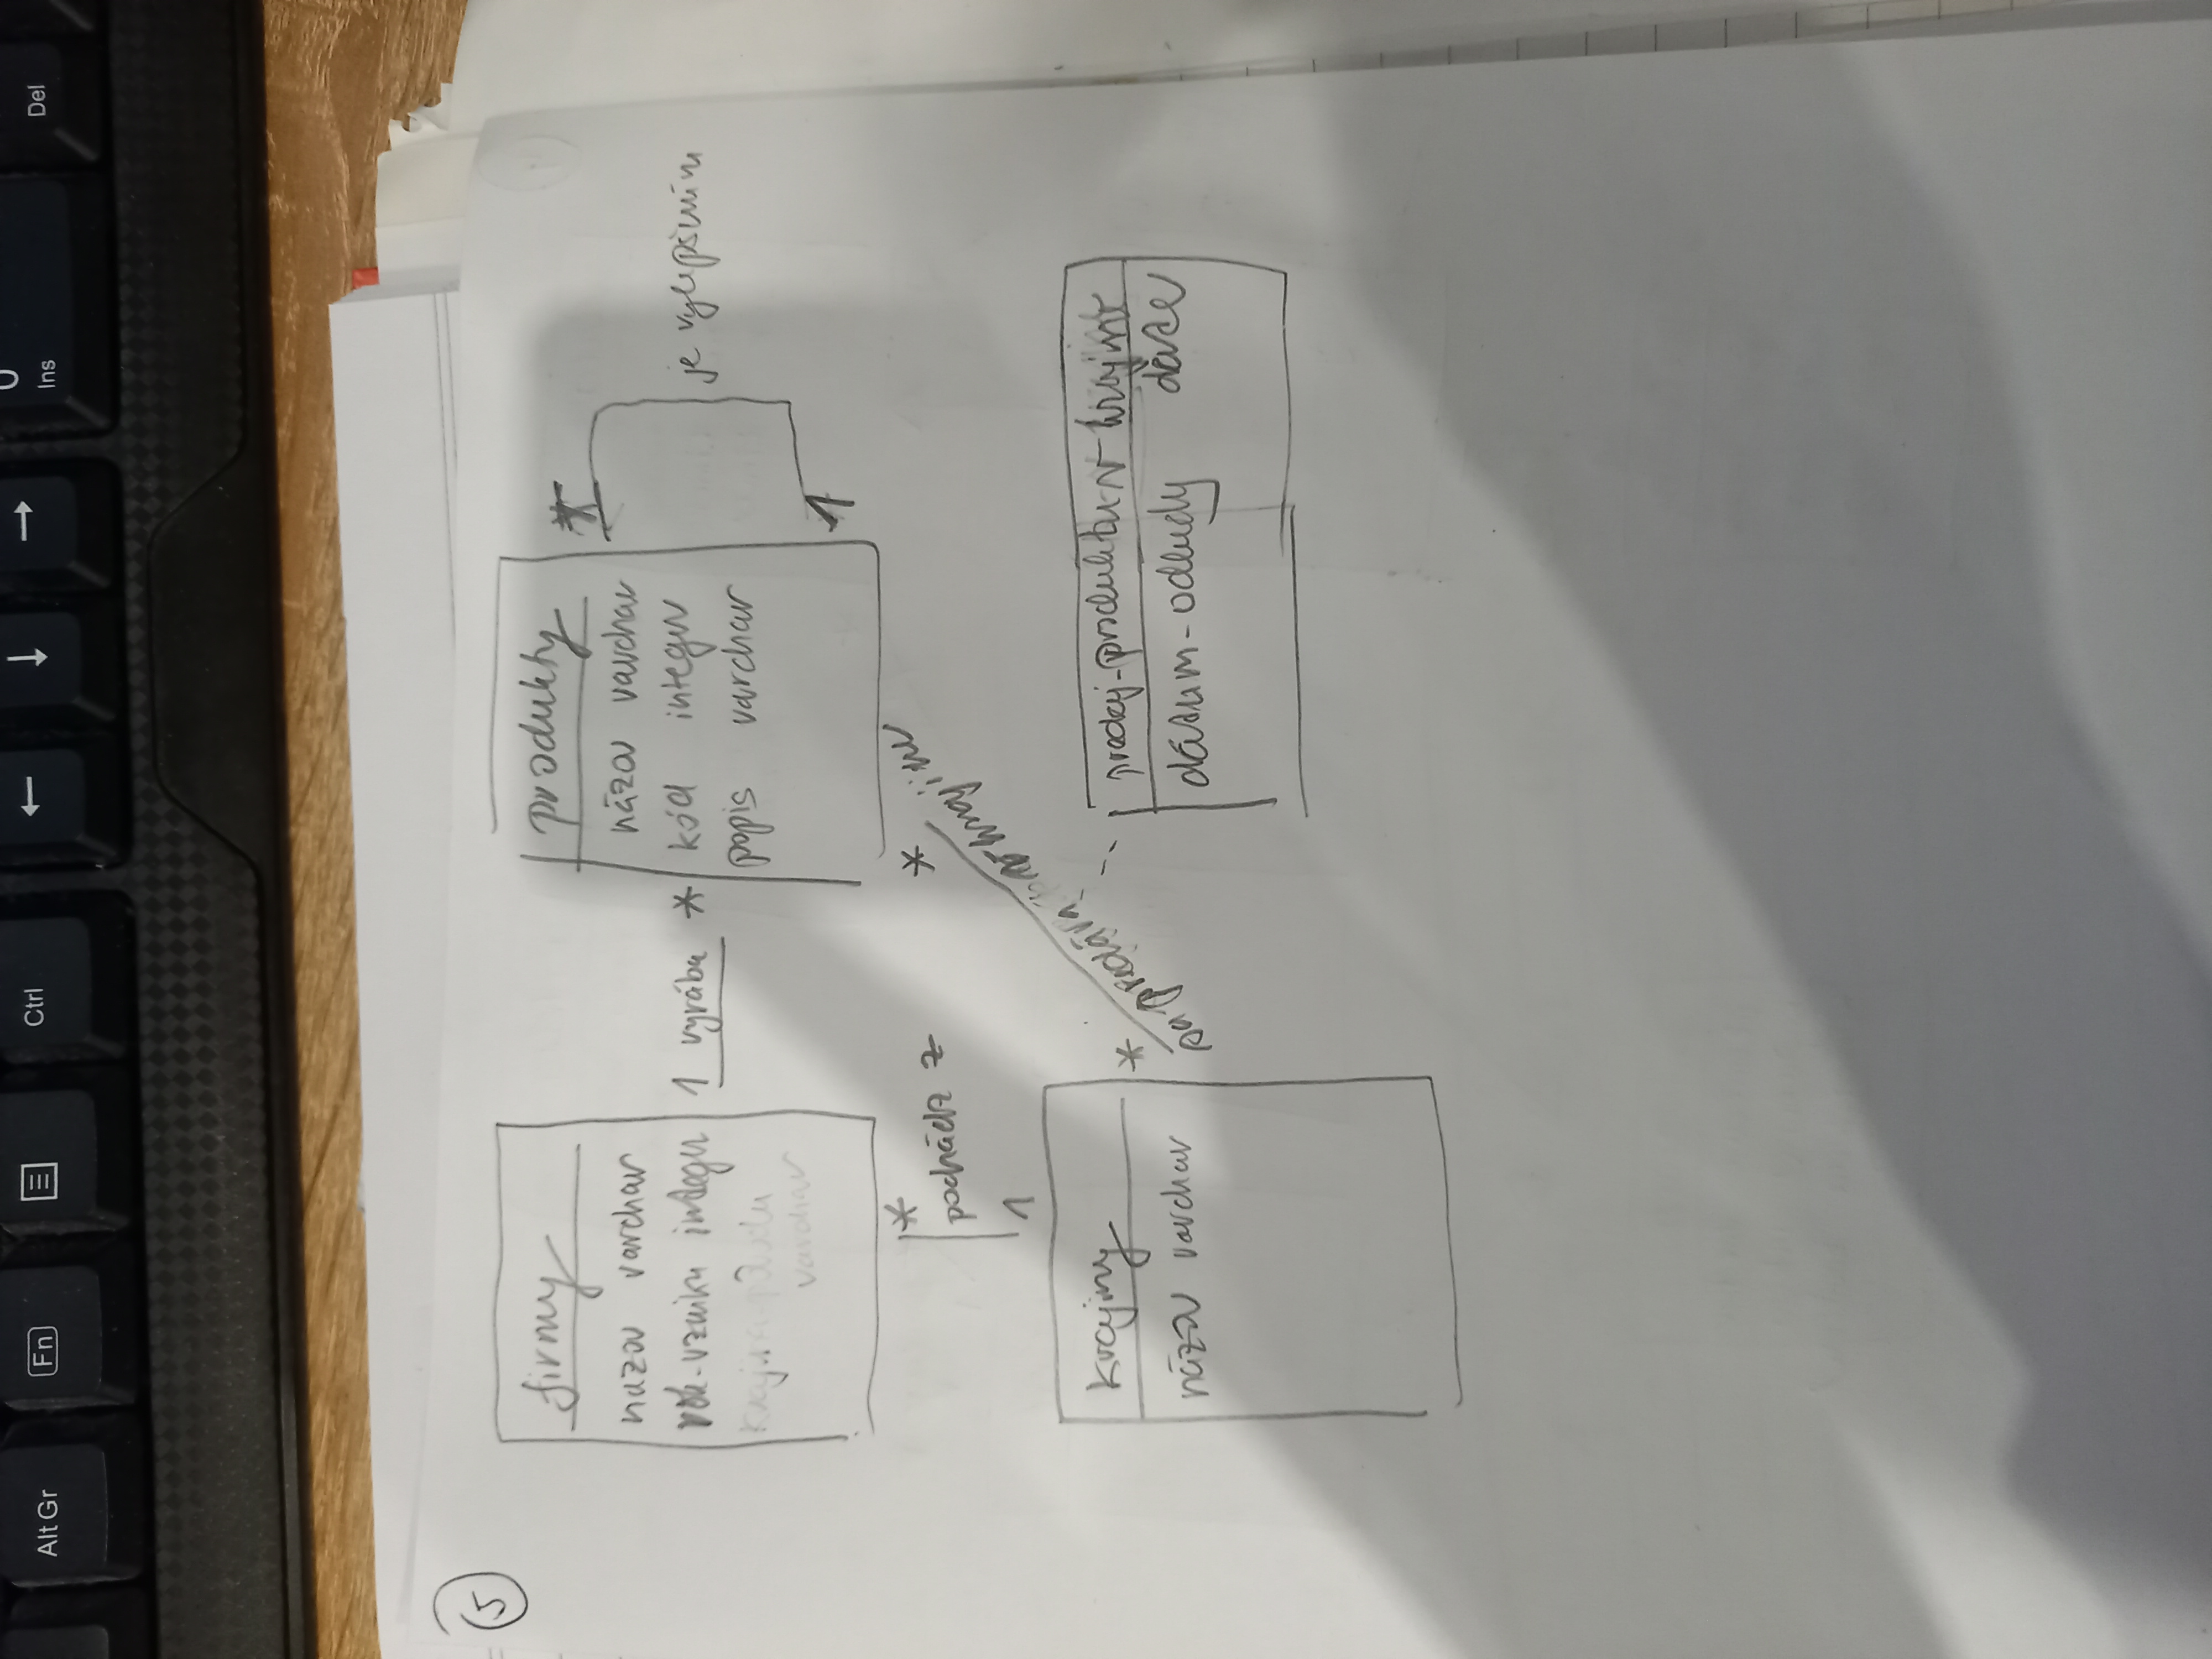 Alt Gr
Fn
Ctrl
←
↓
→
0
Ins
Del
5
firmy
nazov varchar
rok-vzniku integer
varchar
1 vyrába *
produkty
názov varchar
kód integer
popis varchar
*
je vylepšením
1
*
pochádz z
1
*
sa predáva v krajine
*
krajiny
názov varchar
predaj-produktu-v-krajine
dátum-odkedy date